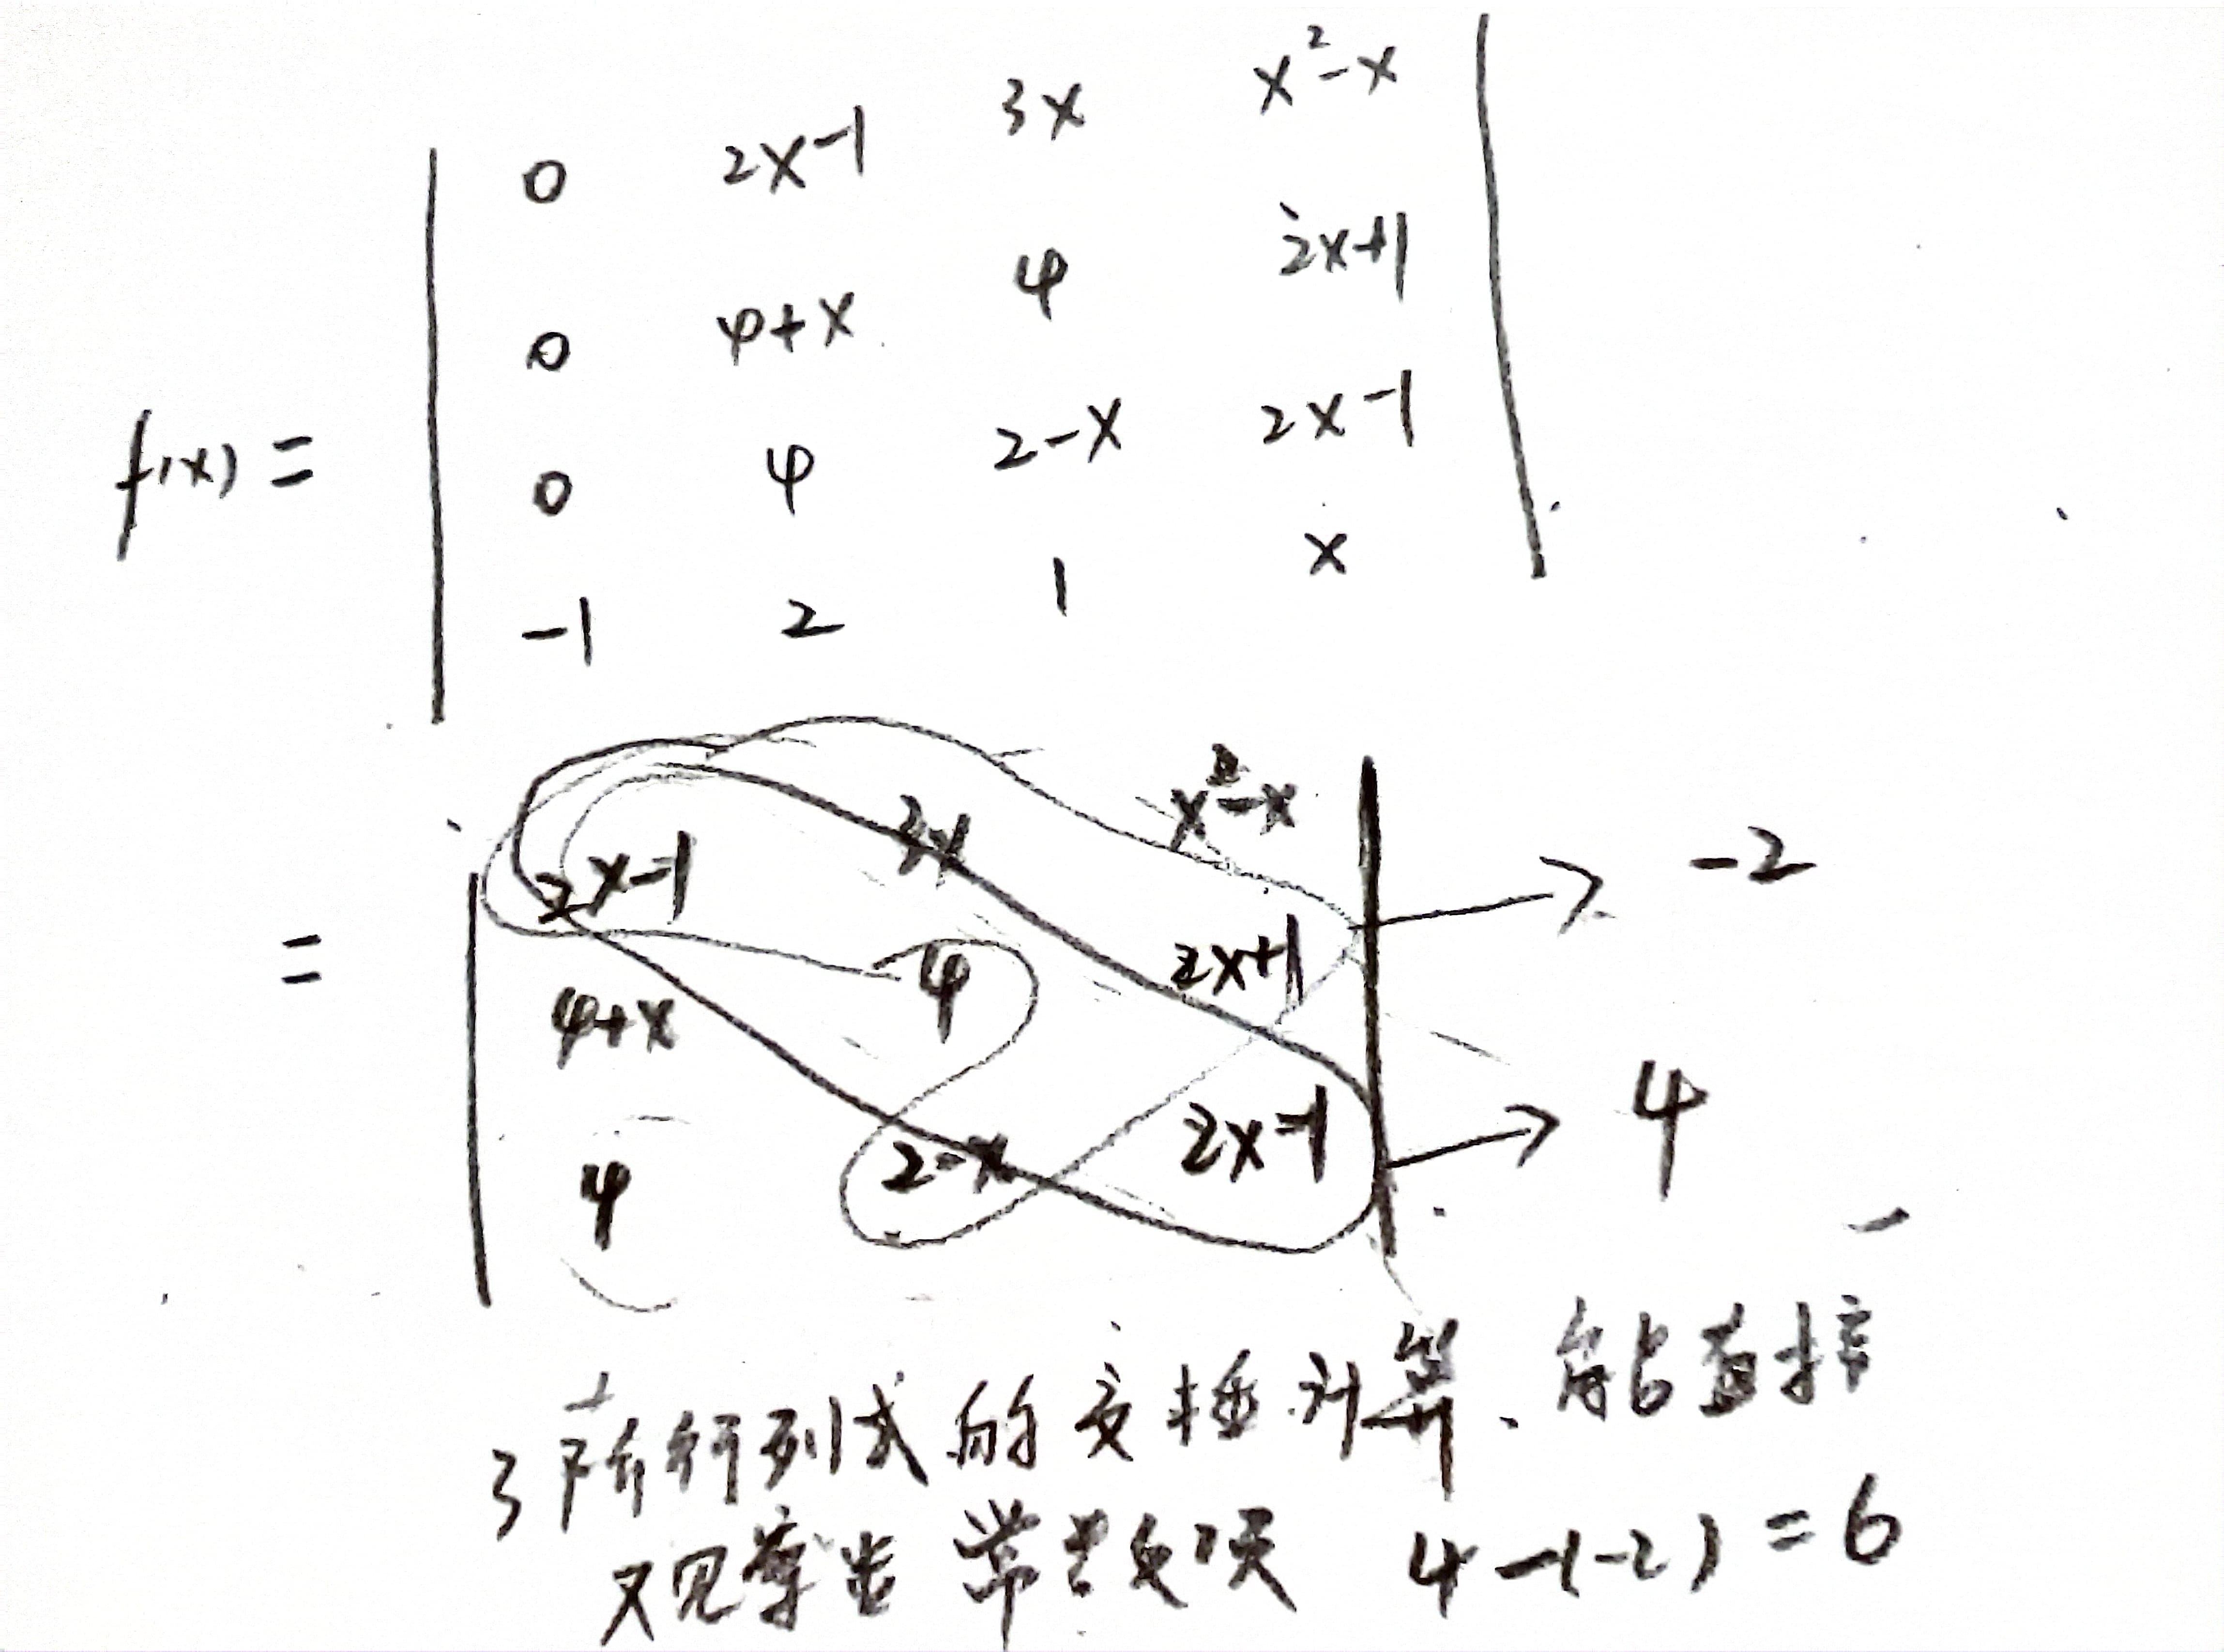 0 2x-1 3x x²-x
0 4+x 4 2x+1
f(x) = 0 4 2-x 2x-1
-1 2 1 x
2x-1 3x x²-x → -2
= 4+x 4 2x+1
4 2-x 2x-1 → 4
3阶行列式的交换计算、能直接
观察出常数项 4-(-2)=6